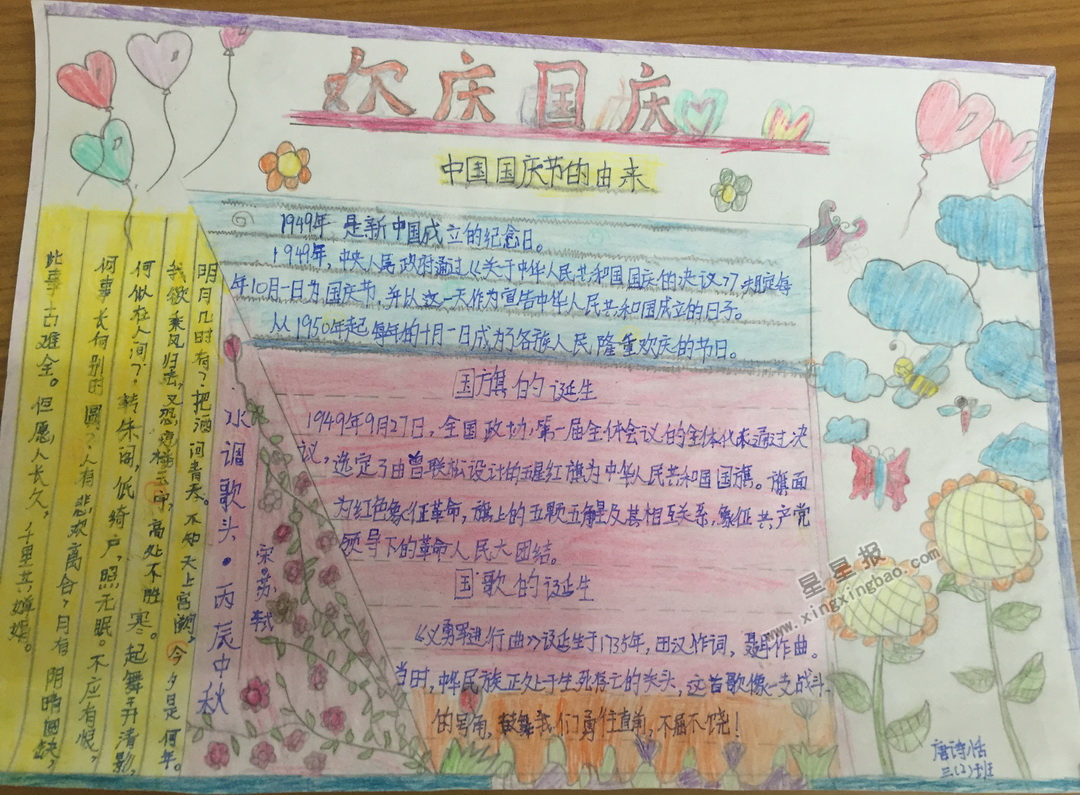 欢庆国庆
中国国庆节的由来
1949年 是新中国成立的纪念日。
1949年,中央人民政府通过《关于中华人民共和国国庆的决议》,规定每
年10月一日为国庆节,并以这一天作为宣告中华人民共和国成立的日子。
从1950年起每年的十月一日成为了各族人民隆重欢庆的节日。
国旗的诞生
1949年9月27日,全国政协第一届全体会议的全体代表通过决
议,选定了由曾联松设计的五星红旗为中华人民共和国国旗。旗面
为红色象征革命,旗上的五颗五角星及其相互关系,象征共产党
领导下的革命人民大团结。
国歌的诞生
《义勇军进行曲》诞生于1735年,田汉作词,聂耳作曲。
当时,中华民族正处于生死存亡的关头,这首歌像一支战斗
的号角,鼓舞我们勇往直前,不屈不饶!
水调歌头·丙辰中秋
宋·苏轼
明月几时有?把酒问青天。不知天上宫阙,今夕是何年。
我欲乘风归去,又恐琼楼玉宇,高处不胜寒。起舞弄清影,
何似在人间?转朱阁,低绮户,照无眠。不应有恨,
何事长向别时圆?人有悲欢离合,月有阴晴圆缺,
此事古难全。但愿人长久,千里共婵娟。
唐诗恬
三(2)班
星星报
www.xingxingbao.com